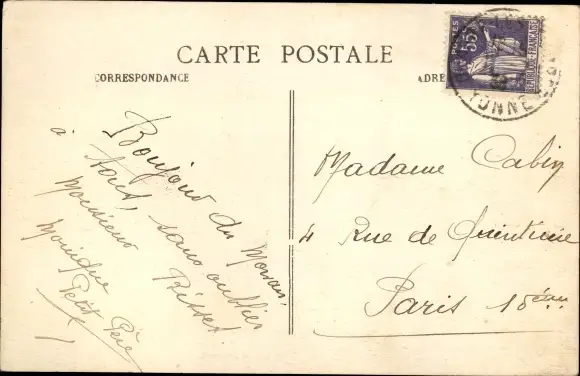 CARTE POSTALE
CORRESPONDANCE
ADRE
POSTES
55c
REPUBLIQUE FRANÇAISE
YONNE
Bonjour du Morvan
à tous, sans oublier
Monsieur Bisset
Monique
Petit Père
Madame Cabin
4 Rue de Quintinie
Paris 15ème